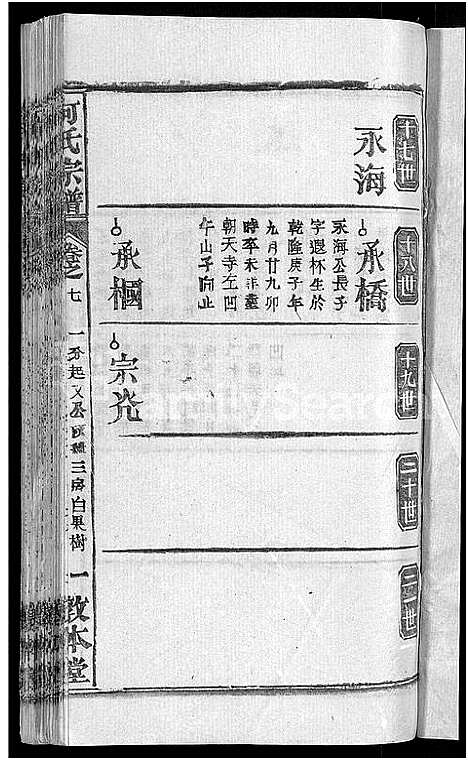 十七世
永海
十八世
承橋
永海公長子
字遐杯生於
乾隆庚子年
九月廿九卯
時卒未詳塟
朝天寺左凹
午山子向止
承楓
十九世
宗光
二十世
二一世
何氏宗譜
卷之七
三房白果樹
一
敦本堂